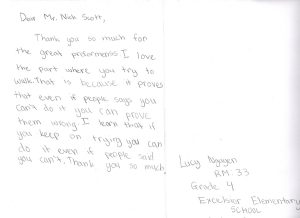 Dear Mr. Nick Scott,
Thank you so much for
the great preforments I love
the part where you try to
walk. That is because it proves
that even if people says you
can't do it you can prove
them wrong. I learn that if
you keep on trying you can
do it even if people said
you can't. Thank you so much,
Lucy Nguyen
RM. 33
Grade 4
Excelsior Elementary
SCHOOL